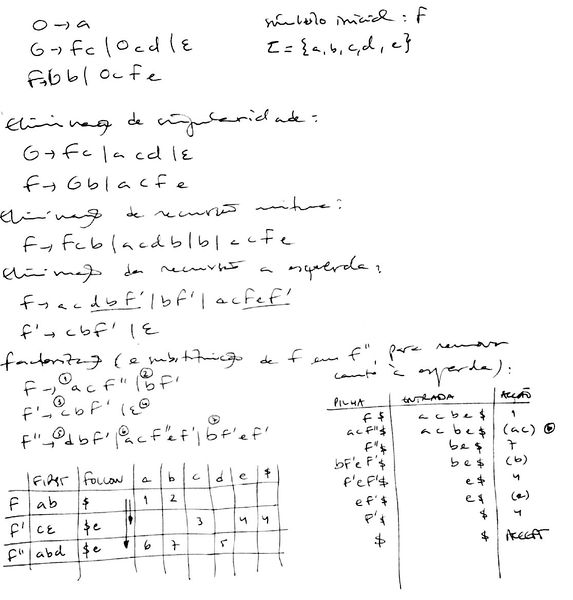 O → a
símbolo inicial : F
G → Fc | Ocd | ε
Σ = {a, b, c, d, e}
F → Gb | Ocfe
Eliminação de singularidade :
G → Fc | acd | ε
F → Gb | acfe
Eliminação de recursão mútua :
F → Fcb | acdb | b | acfe
Eliminação da recursão à esquerda :
F → acdbF' | bF' | acFeF'
F' → cbF' | ε
factorização (e substituição de F em F'' para remover canto à esquerda) :
F → ① acF'' | ② bF'
F' → ③ cbF' | ε ④
F'' → ⑤ dbF' | ⑥ acF''eF' | ⑦ bF'eF'
FIRST FOLLOW a b c d e $
F ab $ 1 2
F' cε $e 3 4 4
F'' abd $e 6 7 5
PILHA ENTRADA ACÇÃO
F$ acbe$ 1
acF''$ acbe$ (ac)
F''$ be$ 7
bF'eF'$ be$ (b)
F'eF'$ e$ 4
eF'$ e$ (e)
F'$ $ 4
$ $ ACCEPT